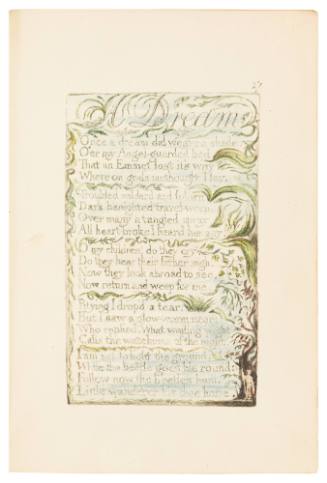 27
A Dream
Once a dream did weave a shade,
O'er my Angel-guarded bed,
That an Emmet lost its way
Where on grass methought I lay.
Troubled wilderd and folorn
Dark benighted travel-worn,
Over many a tangled spray
All heart-broke I heard her say.
O my children! do they cry,
Do they hear their father sigh.
Now they look abroad to see,
Now return and weep for me.
Pitying I drop'd a tear:
But I saw a glow-worm near:
Who replied. What wailing wight
Calls the watchman of the night.
I am set to light the ground,
While the beetle goes his round:
Follow now the beetles hum,
Little wanderer hie thee home.